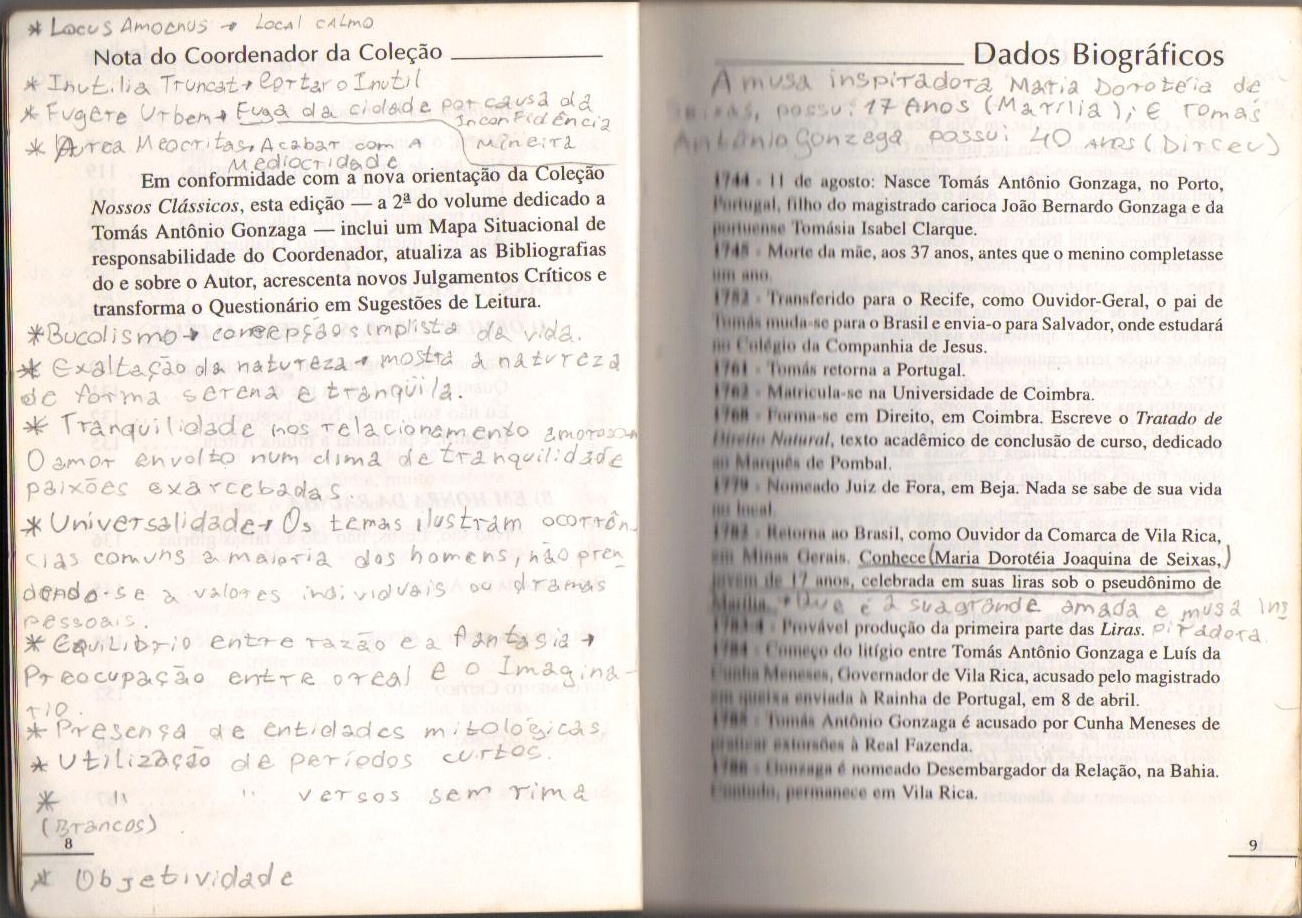 * Locus Amoenus → Local calmo
Nota do Coordenador da Coleção
* Inutilia Truncat → Cortar o Inutil
* Fugere Urbem → Fuga da cidade por causa da
Inconfidência
Mineira
* Aurea Meocritas, Acabar com a
Mediocridade
Em conformidade com a nova orientação da Coleção
Nossos Clássicos, esta edição — a 2ª do volume dedicado a
Tomás Antônio Gonzaga — inclui um Mapa Situacional de
responsabilidade do Coordenador, atualiza as Bibliografias
do e sobre o Autor, acrescenta novos Julgamentos Críticos e
transforma o Questionário em Sugestões de Leitura.
* Bucolismo → concepção simplista da vida.
* Exaltação da natureza → mostra a natureza
de forma serena e tranqüila.
* Tranquilidade nos relacionamento amorosos
O amor envolto num clima de tranquilidade
paixões exarcebadas.
* Universalidade → Os temas ilustram ocorrên
cias comuns a maioria dos homens, não pren
dendo-se a valores individuais ou dramas
pessoais.
* Equilibrio entre razão e a fantasia →
Preocupação entre o real e o Imagina-
rio.
* Presença de entidades mitológicas
* Utilização de períodos curtos.
* " " versos sem rima
(Brancos)
8
* Objetividade
Dados Biográficos
A musa inspiradora Maria Dorotéia de
Seixas, possui 17 Anos (Marília), e Tomás
Antônio Gonzaga possui 40 anos (Dirceu)
1744 - 11 de agosto: Nasce Tomás Antônio Gonzaga, no Porto,
Portugal, filho do magistrado carioca João Bernardo Gonzaga e da
portuense Tomásia Isabel Clarque.
1745 - Morte da mãe, aos 37 anos, antes que o menino completasse
um ano.
1752 - Transferido para o Recife, como Ouvidor-Geral, o pai de
Tomás muda-se para o Brasil e envia-o para Salvador, onde estudará
no Colégio da Companhia de Jesus.
1761 - Tomás retorna a Portugal.
1762 - Matricula-se na Universidade de Coimbra.
1768 - Forma-se em Direito, em Coimbra. Escreve o Tratado de
Direito Natural, texto acadêmico de conclusão de curso, dedicado
ao Marquês de Pombal.
1779 - Nomeado Juiz de Fora, em Beja. Nada se sabe de sua vida
no local.
1782 - Retorna ao Brasil, como Ouvidor da Comarca de Vila Rica,
em Minas Gerais. Conhece (Maria Dorotéia Joaquina de Seixas,)
jovem de 17 anos, celebrada em suas liras sob o pseudônimo de
Marília. * Que é a sua grande amada e musa ins
piradora.
Provável produção da primeira parte das Liras.
1784 - Começo do litígio entre Tomás Antônio Gonzaga e Luís da
Cunha Meneses, Governador de Vila Rica, acusado pelo magistrado
em queixa enviada à Rainha de Portugal, em 8 de abril.
1785 - Tomás Antônio Gonzaga é acusado por Cunha Meneses de
praticar extorsões à Real Fazenda.
1786 - Gonzaga é nomeado Desembargador da Relação, na Bahia.
Contudo, permanece em Vila Rica.
9